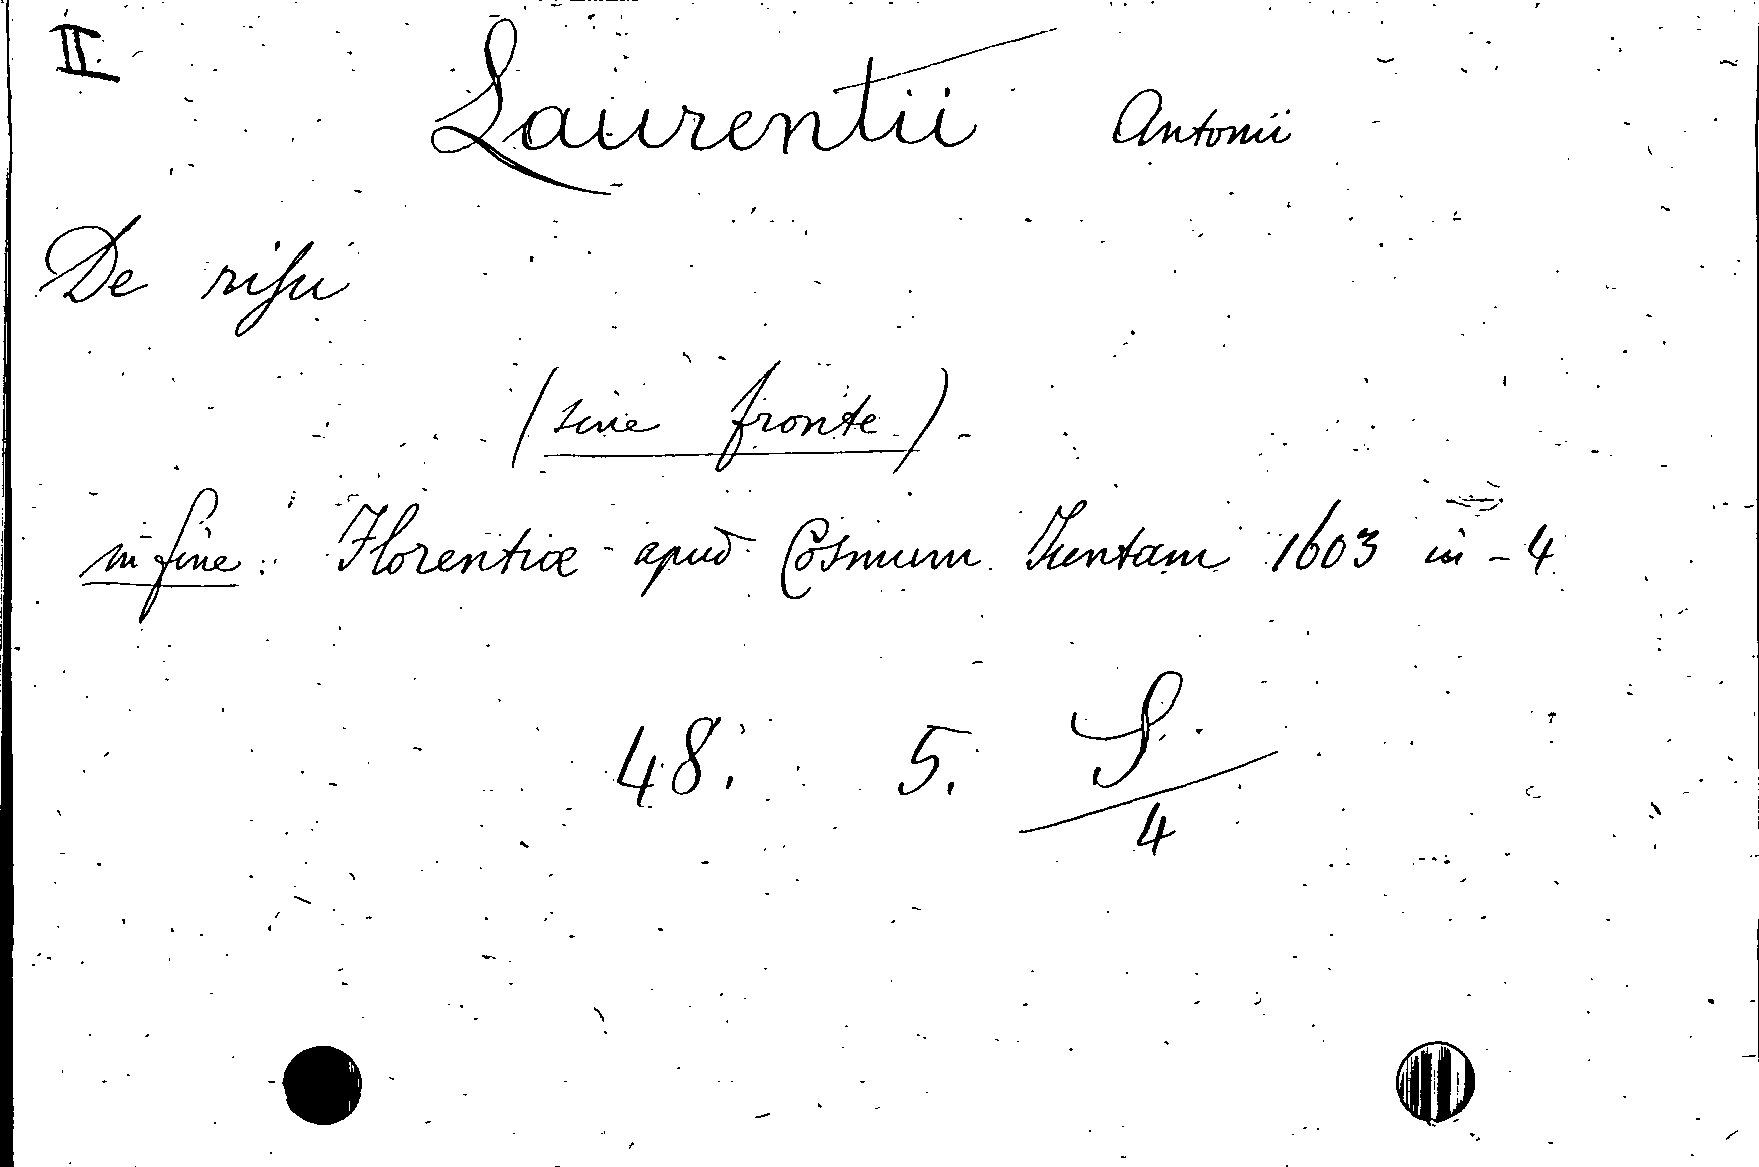 II
Laurentii Antonii
De risu
(sine fronte)
in fine: Florentiæ apud Cosmum Iuntam 1603 in-4
48. 5. S/4